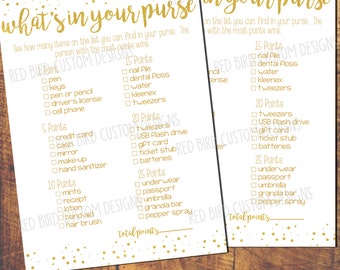 what's in your purse
See how many items on the list you can find in your purse. The
person with the most points wins.
RED BIRD CUSTOM DESIGNS
1 Points
pen
keys
pen or pencil
driver's license
cell phone
5 Points
credit card
cash
mirror
make-up
hand sanitizer
10 Points
mints
receipt
lotion
band-aid
hair brush
15 Points
nail file
dental floss
water
kleenex
tweezers
20 Points
tweezers
USB flash drive
gift card
ticket stub
batteries
25 Points
underwear
passport
umbrella
granola bar
pepper spray
total points
in your purse
the list you can find in your purse. The
with the most points wins.
15 Points
nail file
dental floss
water
kleenex
tweezers
20 Points
tweezers
USB flash drive
gift card
ticket stub
batteries
25 Points
underwear
passport
umbrella
granola bar
pepper spray
total points